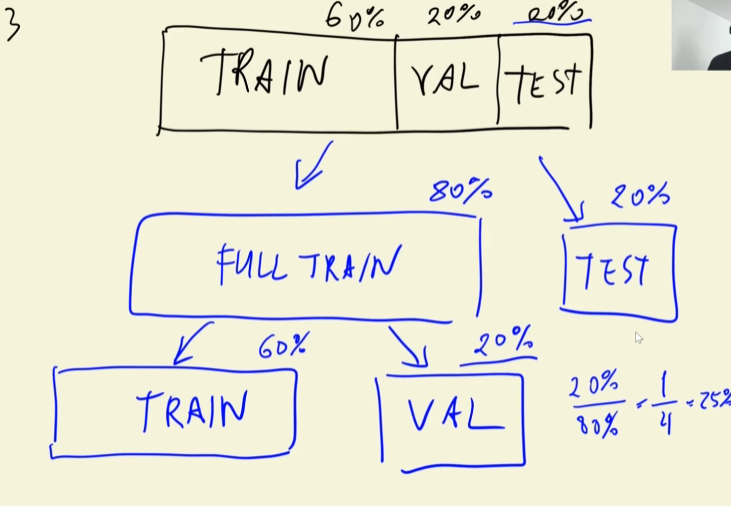 3
60% 20% 20%
TRAIN VAL TEST
80% 20%
FULL TRAIN TEST
60% 20%
TRAIN VAL
20%/80% = 1/4 = 25%